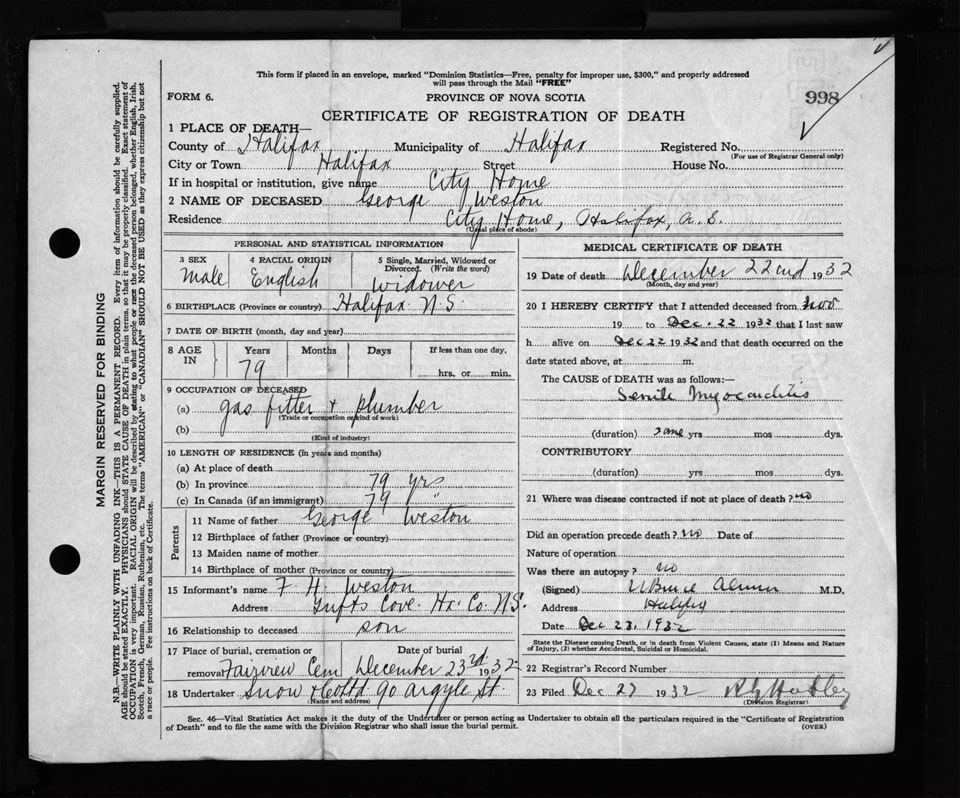 This form if placed in an envelope, marked "Dominion Statistics—Free, penalty for improper use, $300," and properly addressed
will pass through the Mail "FREE"
FORM 6.
PROVINCE OF NOVA SCOTIA
998
CERTIFICATE OF REGISTRATION OF DEATH
1 PLACE OF DEATH—
County of Halifax Municipality of Halifax Registered No.
(For use of Registrar General only)
City or Town Halifax Street House No.
If in hospital or institution, give name City Home
2 NAME OF DECEASED George Weston
Residence City Home, Halifax, N.S.
(Usual place of abode)
PERSONAL AND STATISTICAL INFORMATION
3 SEX
Male
4 RACIAL ORIGIN
English
5 Single, Married, Widowed or
Divorced. (Write the word)
widower
6 BIRTHPLACE (Province or country) Halifax N.S.
7 DATE OF BIRTH (month, day and year)
8 AGE
IN
Years
79
Months
Days
If less than one day,
hrs. or min.
9 OCCUPATION OF DECEASED
(a) gas fitter & plumber
(Trade or occupation or kind of work)
(b)
(Kind of industry)
10 LENGTH OF RESIDENCE (in years and months)
(a) At place of death
(b) In province 79 yrs
(c) In Canada (if an immigrant) 79 "
Parents
11 Name of father George Weston
12 Birthplace of father (Province or country)
13 Maiden name of mother
14 Birthplace of mother (Province or country)
15 Informant's name F. H. Weston
Address Tufts Cove. Hx. Co. N.S.
16 Relationship to deceased son
17 Place of burial, cremation or Date of burial
removal Fairview Cem December 23rd 1932
18 Undertaker Snow & Co Ltd 90 Argyle St.
(Name and address)
MEDICAL CERTIFICATE OF DEATH
19 Date of death December 22nd 1932
(Month, day and year)
20 I HEREBY CERTIFY that I attended deceased from Nov
19 to Dec. 22 1932 that I last saw
h alive on Dec 22 1932 and that death occurred on the
date stated above, at m.
The CAUSE of DEATH was as follows:—
Senile Myocarditis
(duration) some yrs mos dys.
CONTRIBUTORY
(duration) yrs mos dys.
21 Where was disease contracted if not at place of death? no
Did an operation precede death? no Date of
Nature of operation
Was there an autopsy? no
(Signed) Bruce Almon M.D.
Address Halifax
Date Dec 23, 1932
State the Disease causing Death, or in death from Violent Causes, state (1) Means and Nature
of Injury, (2) whether Accidental, Suicidal or Homicidal.
22 Registrar's Record Number
23 Filed Dec 27 1932
(Division Registrar)
Sec. 46—Vital Statistics Act makes it the duty of the Undertaker or person acting as Undertaker to obtain all the particulars required in the "Certificate of Registration
of Death" and to file the same with the Division Registrar who shall issue the burial permit. (OVER)
MARGIN RESERVED FOR BINDING
N.B.—WRITE PLAINLY WITH UNFADING INK—THIS IS A PERMANENT RECORD. Every item of information should be carefully supplied.
AGE should be stated EXACTLY. PHYSICIANS should STATE CAUSE OF DEATH in plain terms, so that it may be properly classified. Exact statement of
OCCUPATION is very important. RACIAL ORIGIN will be described by stating to what people or race the deceased person belonged, whether English, Irish,
Scotch, French, German, Russian, Ruthenian, etc. The terms "AMERICAN" or "CANADIAN" SHOULD NOT BE USED as they express citizenship but not
a race or people. See instructions on back of Certificate.